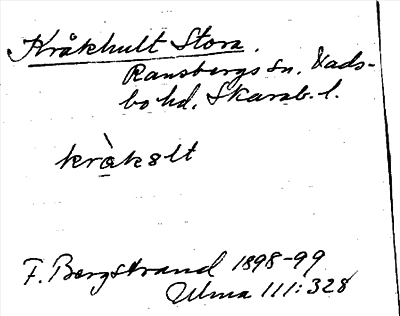 Kråkhult Stora.
Ransbergs sn. Vads-
bo hd. Skarab. l.
kràkält
F. Bergstrand 1898-99
Ulma 111:328